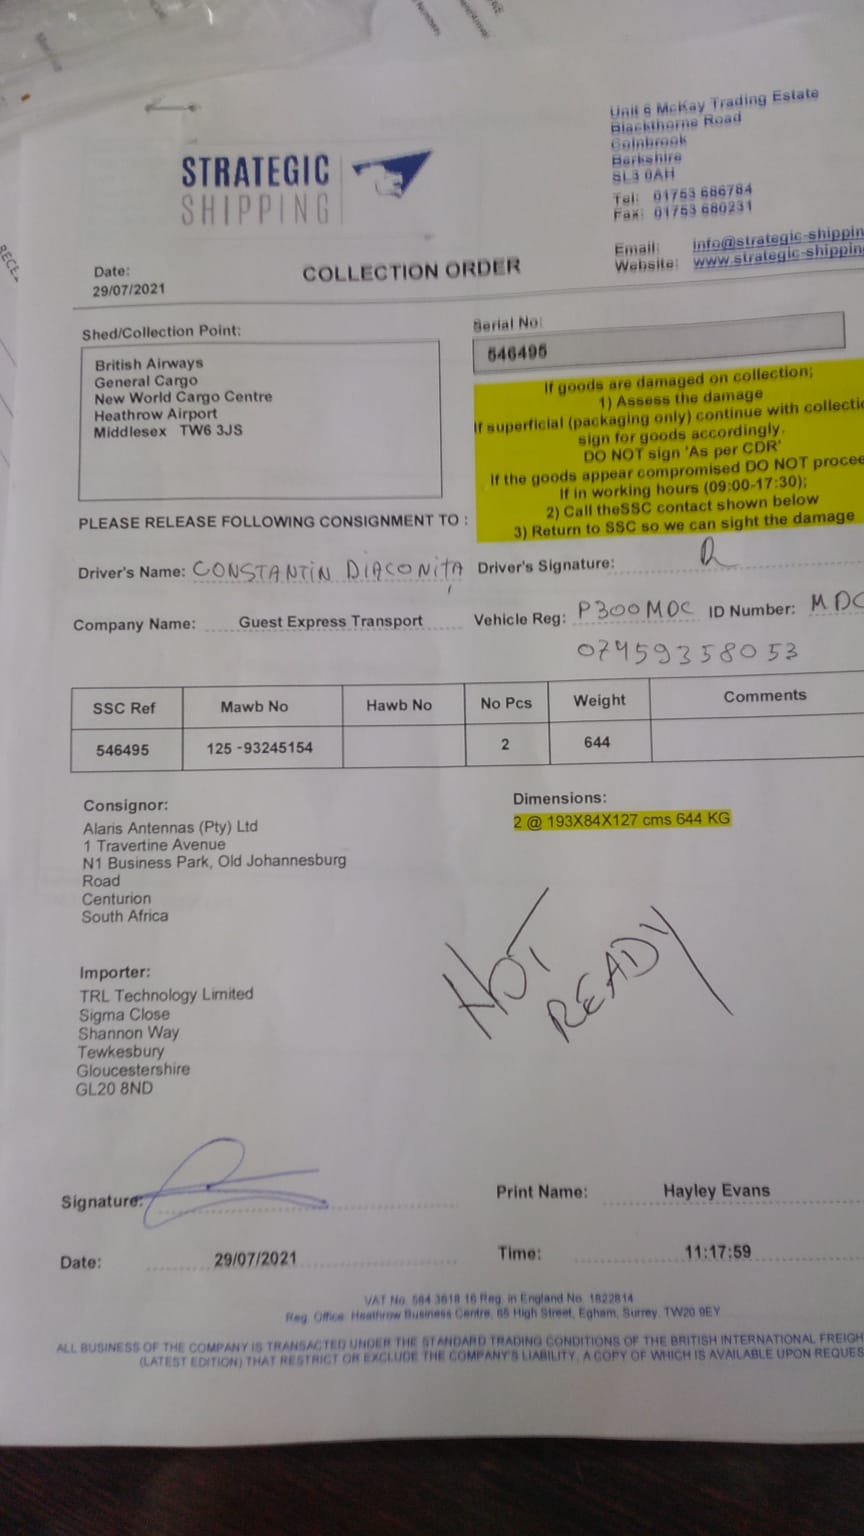 STRATEGIC
SHIPPING
Unit 6 McKay Trading Estate
Blackthorne Road
Colnbrook
Berkshire
SL3 0AH
Tel: 01753 686784
Fax: 01753 680231
Email: info@strategic-shippin
Website: www.strategic-shipping
Date:
29/07/2021
COLLECTION ORDER
Shed/Collection Point:
British Airways
General Cargo
New World Cargo Centre
Heathrow Airport
Middlesex TW6 3JS
Serial No:
546495
If goods are damaged on collection;
1) Assess the damage
If superficial (packaging only) continue with collectio
sign for goods accordingly.
DO NOT sign 'As per CDR'
If the goods appear compromised DO NOT procee
If in working hours (09:00-17:30);
2) Call theSSC contact shown below
3) Return to SSC so we can sight the damage
PLEASE RELEASE FOLLOWING CONSIGNMENT TO :
Driver's Name: CONSTANTIN DIACONITA Driver's Signature:
Company Name: Guest Express Transport Vehicle Reg: P300MDC ID Number: MDC
07459358053
SSC Ref Mawb No Hawb No No Pcs Weight Comments
546495 125 -93245154 2 644
Consignor:
Alaris Antennas (Pty) Ltd
1 Travertine Avenue
N1 Business Park, Old Johannesburg
Road
Centurion
South Africa
Dimensions:
2 @ 193X84X127 cms 644 KG
NOT
READY
Importer:
TRL Technology Limited
Sigma Close
Shannon Way
Tewkesbury
Gloucestershire
GL20 8ND
Signature: Print Name: Hayley Evans
Date: 29/07/2021 Time: 11:17:59
VAT No. 584 3618 16 Reg. in England No. 1822814
Reg. Office: Heathrow Business Centre, 65 High Street, Egham, Surrey. TW20 9EY
ALL BUSINESS OF THE COMPANY IS TRANSACTED UNDER THE STANDARD TRADING CONDITIONS OF THE BRITISH INTERNATIONAL FREIGH
(LATEST EDITION) THAT RESTRICT OR EXCLUDE THE COMPANY'S LIABILITY, A COPY OF WHICH IS AVAILABLE UPON REQUES